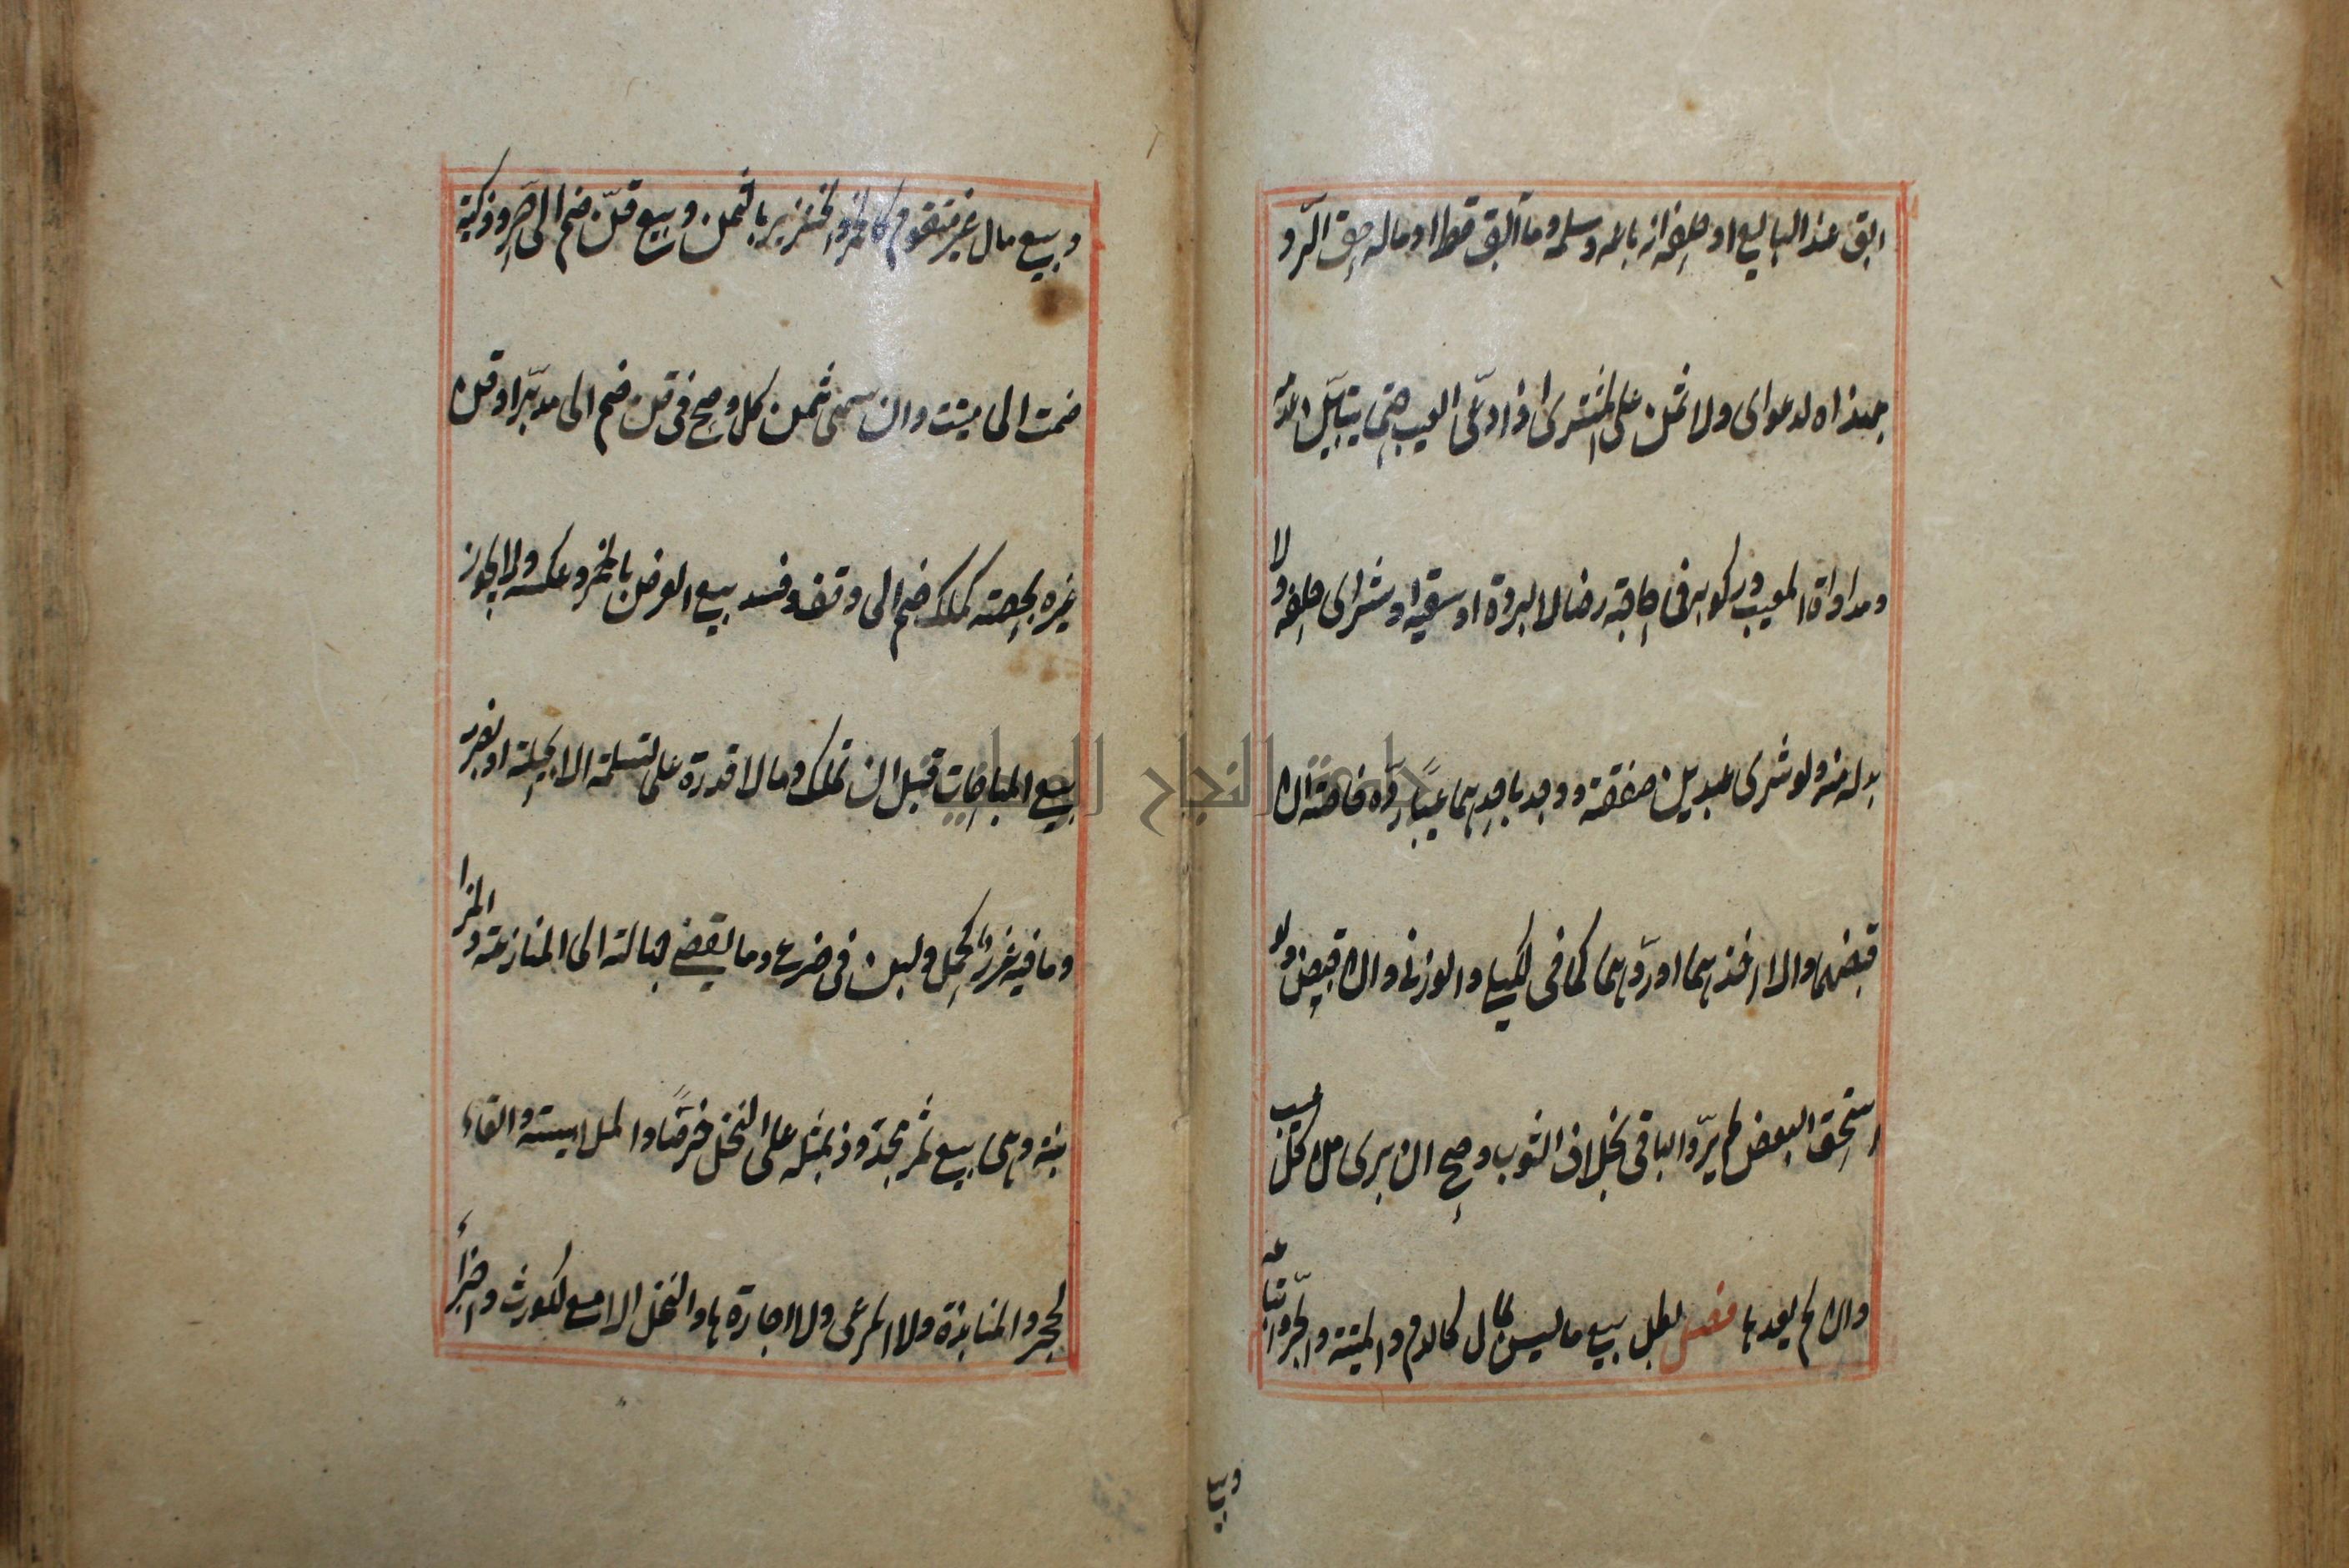 ابق عند البايع او حلفه انه باعه وسلمه وما ابق قط او ماله حق الرد
بهذا له لدعواى ولا ثمن على المشترى اذا ادعى العيب حتى يتبين عدمه
ومداواة المعيب وركوبه فى حاجته رضا لا لبرده او سقيه او شراى علفه ولا
بد له منه ولو شرى عبدين صفقة ووجد باحدهما عيبا رده خاصة ان
قبضهما والا اخذهما او ردهما كما فى الكيلى والوزنى وان قبض ولو
استحق البعض لم يرد الباقى بخلاف الثوب وصح ان برى من كل عيب
وان لم يعدها فصل بطل بيع ما ليس بمال كالدم والميتة والحر واتباعه
وبيع
وبيع مال غير متقوم كالخمر والخنزير بالثمن وبيع قن ضم الى حر وذكية
ضمت الى ميتة وان سمى ثمن كل وصح فى قن ضم الى مدبر او قن
غيره بحصته كملك ضم الى وقف وفسد بيع العرض بالخمر وعكسه ولا يجوز
بيع المباحات قبل ان تملك وما لا قدرة على تسلمه الا بحيلة او بضرر
وما فيه غرر كالحمل ولبن فى ضرع وما يفضى جهالته الى المنازعة والمزا
بنة وهى بيع ثمر مجذوذ بمثله على النخل خرصا والملامسة والقاء
الحجر والمنابذة ولا المرعى ولا اجارتها والنحل الا مع الكورات واجزاء
جامعة النجاح الوطنية